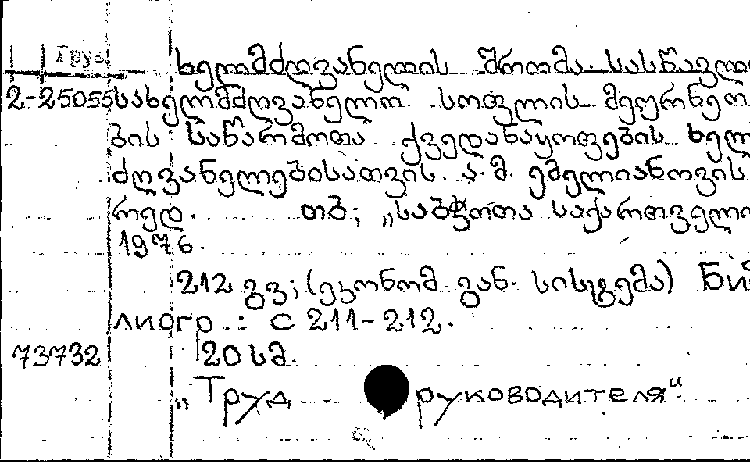 Груз
ხელმძღვანელის შრომა. სასწავლო
2-25055 სახელმძღვანელო სოფლის მეურნეო
ბის საწარმოთა ქვედანაყოფების ხელ
ძღვანელებისათვის. ა. მ. ემელიანოვის
რედ. თბ; „საბჭოთა საქართველო
1976.
212 გვ; (ეკონომ. გან. სისტემა) Биб
лиогр.: с 211-212.
73732 20 სმ.
„Труд руководителя“.